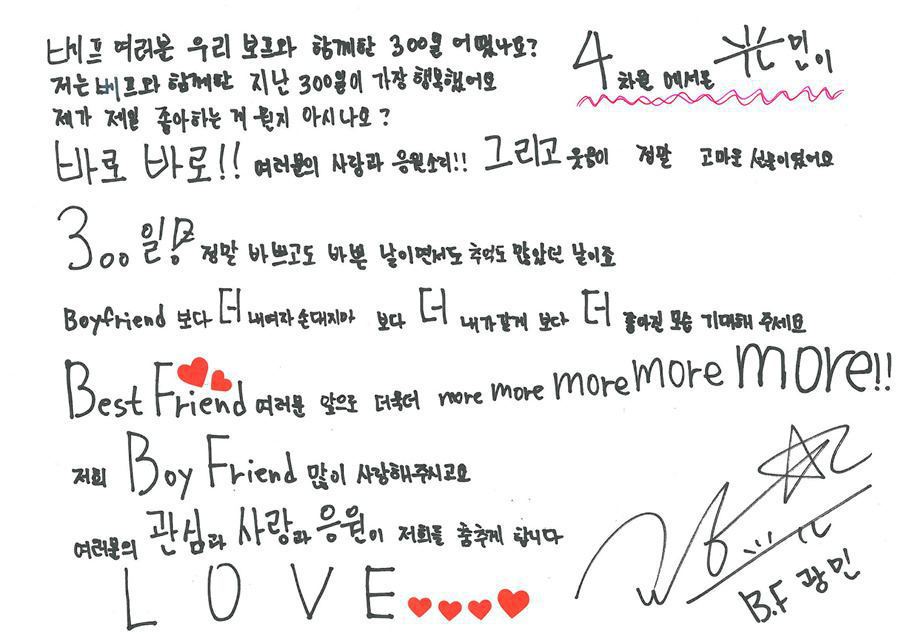 베프 여러분 우리 보프와 함께한 300일 어땠나요?
저는 베프와 함께한 지난 300일이 가장 행복했어요
제가 제일 좋아하는 게 뭔지 아시나요?
4차원 에서온 光민이
바로 바로!! 여러분의 사랑과 응원소리!! 그리고 웃음이 정말 고마운 선물이었어요
300일은 정말 바쁘고도 바쁜 날이면서도 추억도 많았던 날이죠
Boyfriend 보다 더 내여자 손대지마 보다 더 내가갈게 보다 더 좋아진 모습 기대해 주세요
Best Friend 여러분 앞으로 더욱더 more more more more more!!
저희 Boy Friend 많이 사랑해주시고요
여러분의 관심과 사랑과 응원이 저희를 춤추게 합니다
L O V E
B.F 광민